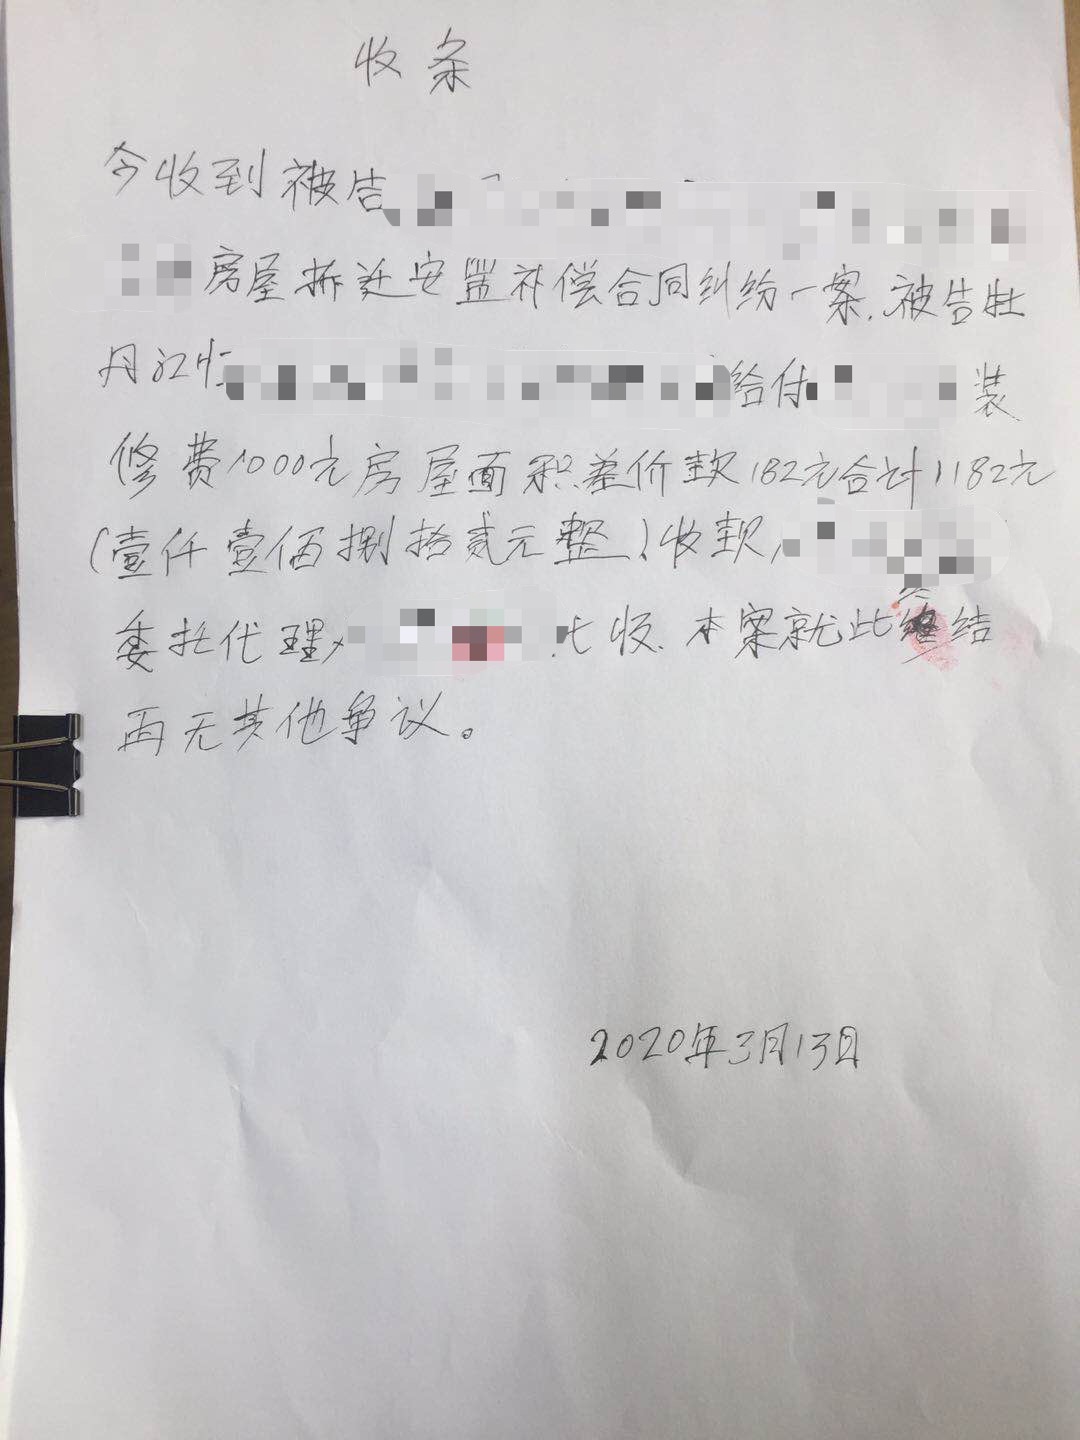 收条
今收到被告
房屋拆迁安置补偿合同纠纷一案,被告牡
丹江
给付 装
修费1000元房屋面积差价款182元合计1182元
(壹仟壹佰捌拾贰元整)收款人
委托代理人 代收.本案就此终结
再无其他争议。
2020年3月13日